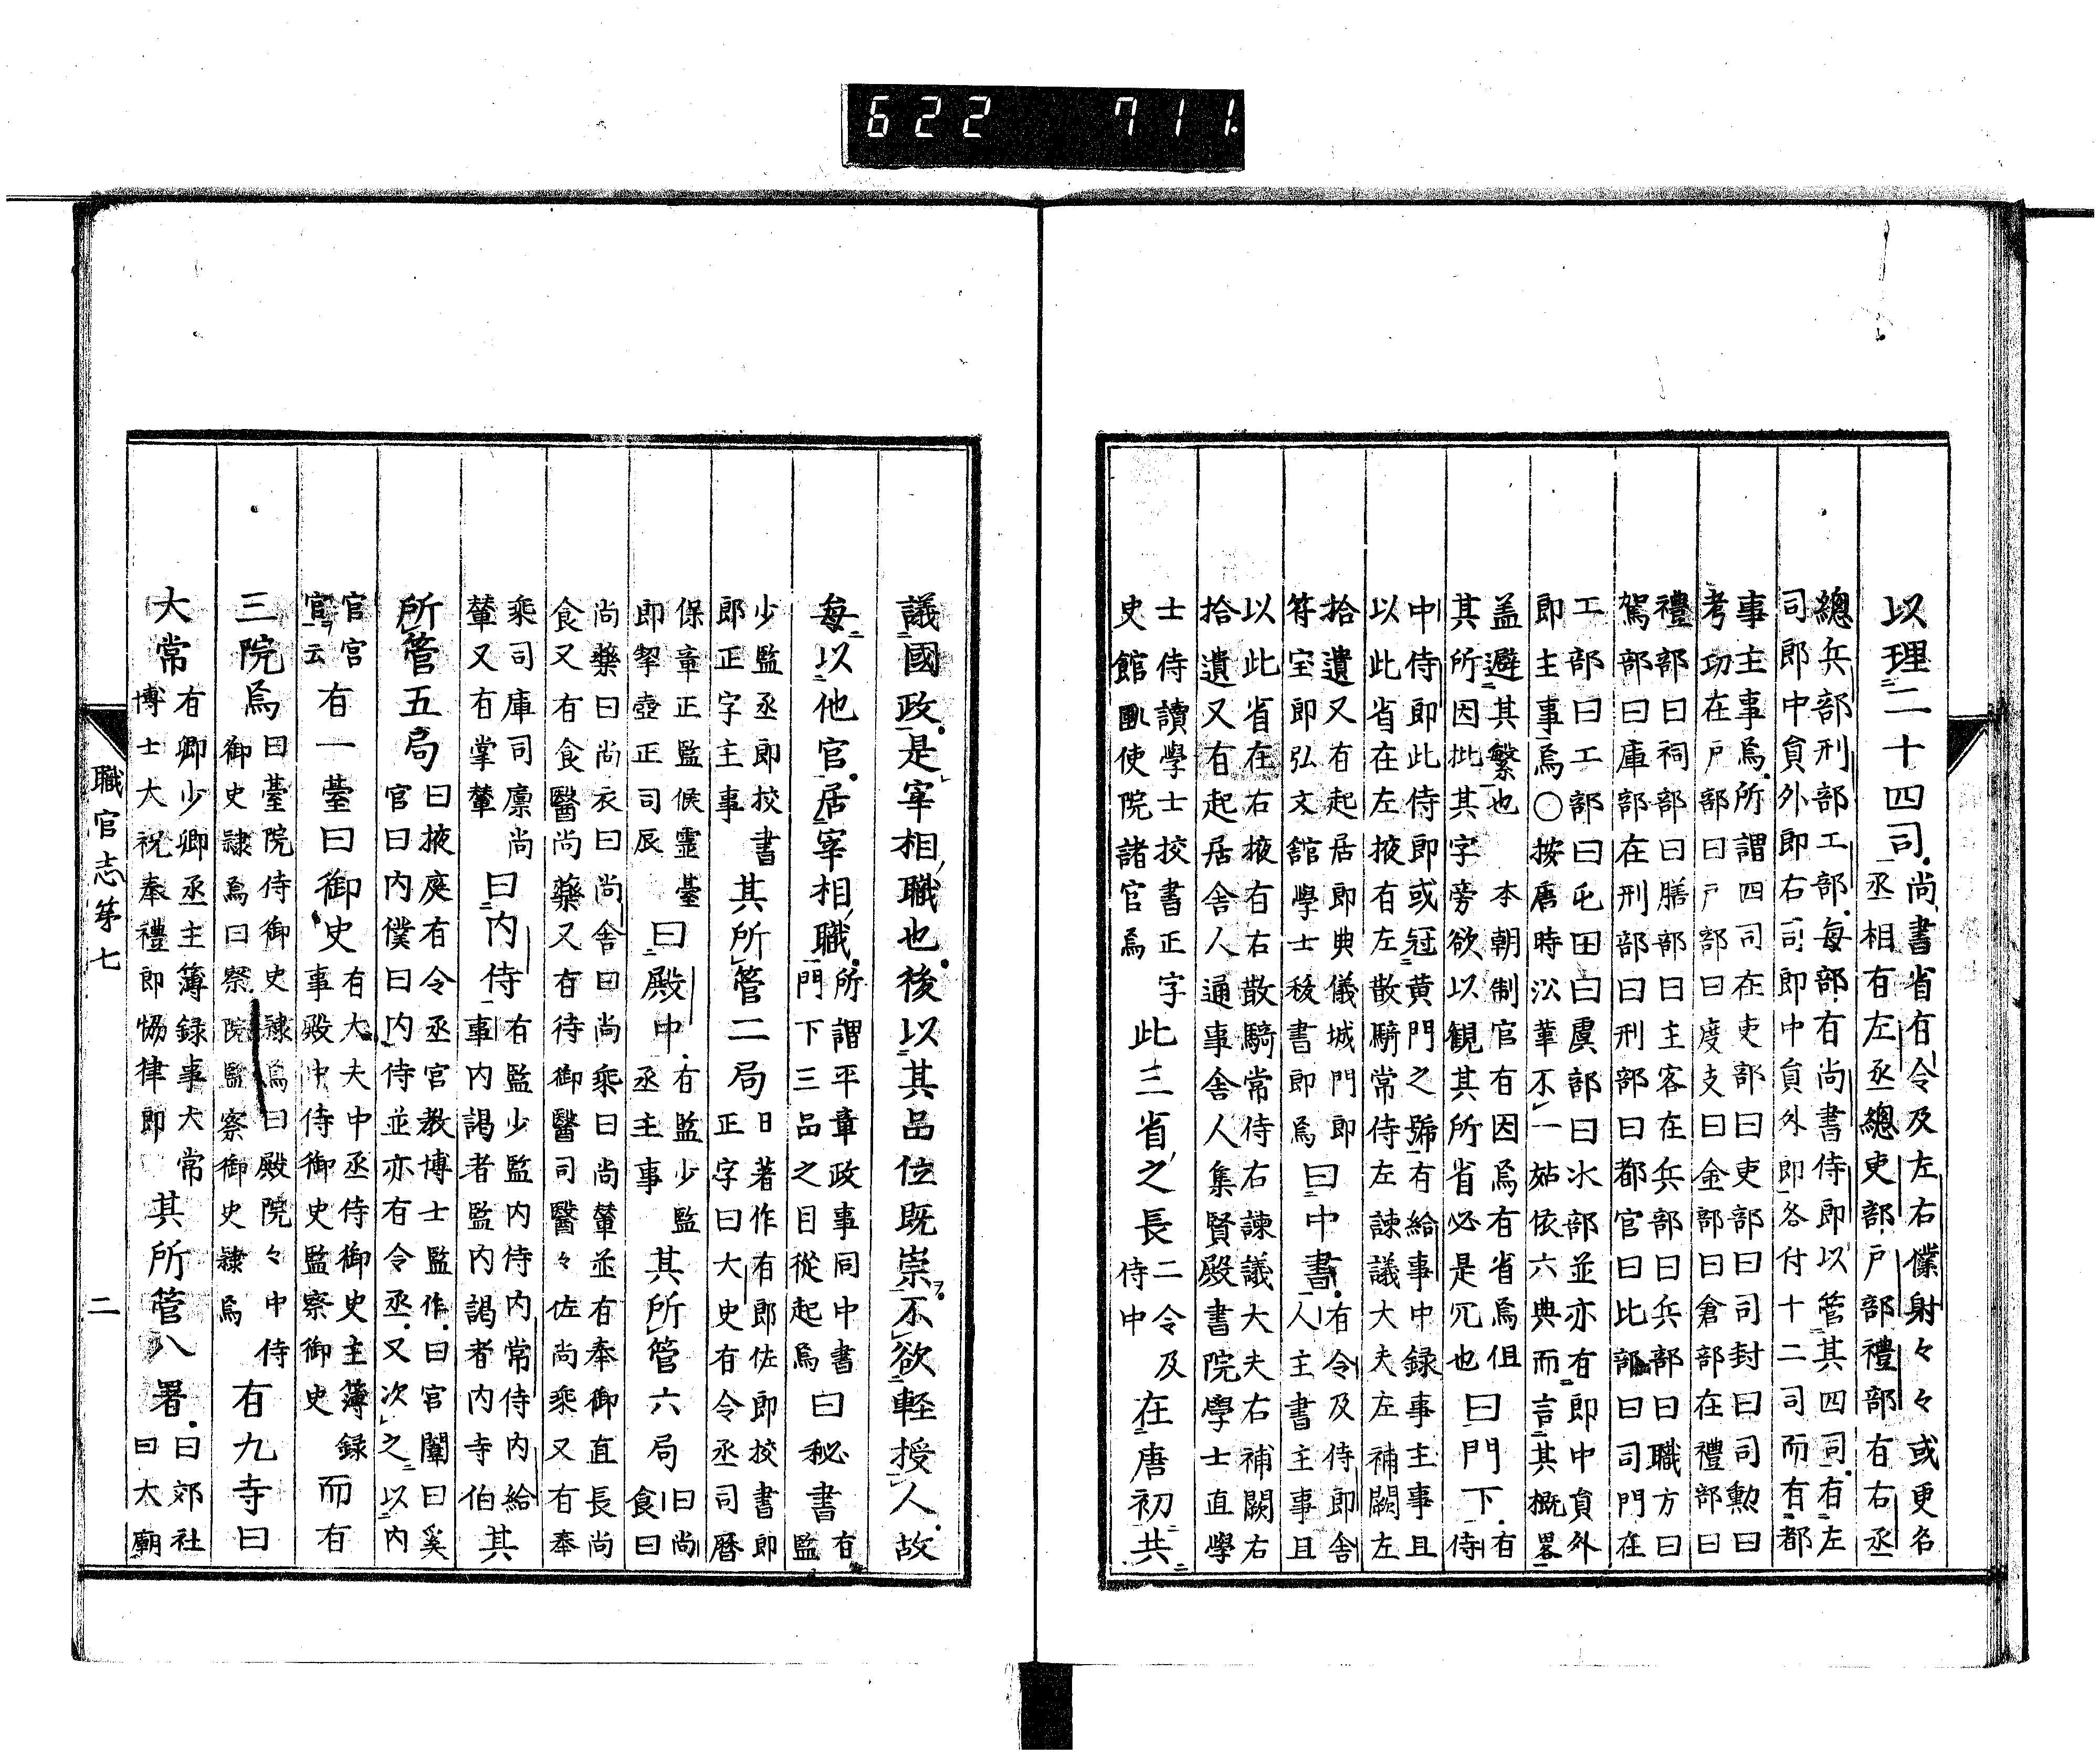 622 711.
以理二十四司尚書省有令及左右僕射々々或更名
丞相有左丞總吏部戶部禮部有右丞
總兵部刑部工部每部有尚書侍郎以管其四司有左
司郎中貟外郎右司郎中貟外郎各付十二司而有都
事主事焉所謂四司在吏部曰吏部曰司封曰司勲曰
考功在戶部曰戶部曰度支曰金部曰倉部在禮部曰
禮部曰祠部曰膳部曰主客在兵部曰兵部曰職方曰
駕部曰庫部在刑部曰刑部曰都官曰比部曰司門在
工部曰工部曰屯田曰虞部曰水部並亦有郎中貟外
郎主事焉〇按唐時沿革不一姑依六典而言其概畧
盖避其繁也 本朝制官有因焉有省焉但
其所因批其字旁欲以観其所省必是冗也曰門下有
侍
中侍郎此侍郎或冠黄門之號有給事中録事主事且
以此省在左掖有左散騎常侍左諫議大夫左補闕左
拾遺又有起居郎典儀城門郎
符宝郎弘文館學士校書郎焉曰中書有令及侍郎舍
人主書主事且
以此省在右掖有右散騎常侍右諫議大夫右補闕右
拾遺又有起居舍人通事舍人集賢殿書院學士直學
士侍讀學士挍書正字
史館匭使院諸官焉此三省之長二令及
侍中在唐初共
議國政是宰相職也後以其品位既崇不欲軽授人故
每以他官居宰相職所謂平章政事同中書
門下三品之目從起焉曰秘書有
監
少監丞郎挍書
郎正字主事其所管二局曰著作有郎佐郎挍書郎
正字曰大史有令丞司曆
保章正監候靈臺
郎挈壺正司辰曰殿中有監少監
丞主事其所管六局曰尚
食曰
尚藥曰尚衣曰尚舍曰尚乘曰尚輦並有奉御直長尚
食又有食醫尚藥又有侍御醫司醫々佐尚乘又有奉
乘司庫司廪尚
輦又有掌輦曰内侍有監少監内侍内常侍内給
事内謁者監内謁者内寺伯其
所管五局曰掖庭有令丞官教博士監作曰官闈曰奚
官曰内僕曰内侍並亦有令丞又次之以内
官宮
官云有一臺曰御史有大夫中丞侍御史主簿録
事殿中侍御史監察御史而有
三院焉曰臺院侍御史隷焉曰殿院々中侍
御史隷焉曰察院監察御史隷焉有九寺曰
大常有卿少卿丞主簿録事大常
博士大祝奉禮郎恊律郎其所管八署曰郊社
曰大廟
職官志苐七 二